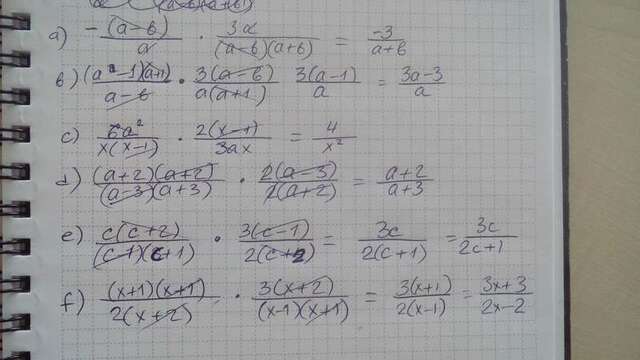 a) -(a-b)/a · 3a/(a-b)(a+b) = -3/a+b
b) (a²-1)(a+1)/a-b · 3(a-b)/a(a+1) 3(a-1)/a = 3a-3/a
c) 6a²/x(x-1) · 2(x-1)/3ax = 4/x²
d) (a+2)(a+2)/(a-3)(a+3) · 2(a-3)/2(a+2) = a+2/a+3
e) c(c+2)/(c-1)(c+1) · 3(c-1)/2(c+2) = 3c/2(c+1) = 3c/2c+1
f) (x+1)(x+1)/2(x+2) · 3(x+2)/(x-1)(x+1) = 3(x+1)/2(x-1) = 3x+3/2x-2